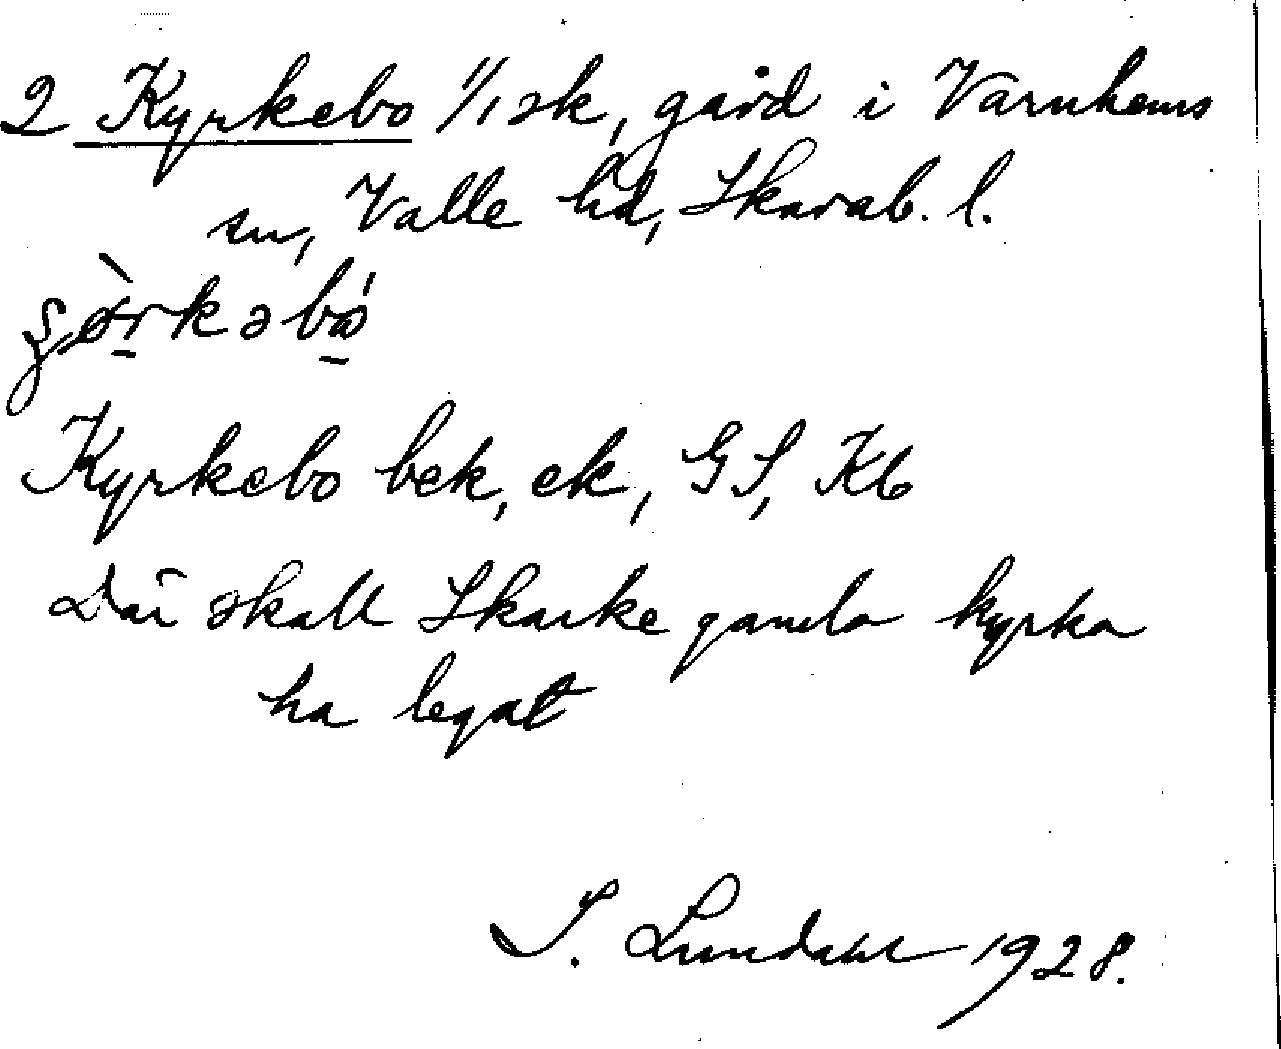 2 Kyrkebo 1/1 sk, gård i Varnhems
sn, Valle hd, Skarab. l.
Kyrkebo bek, ek, GS, Kb
Där skall Skarke gamla kyrka
ha legat
I. Lundahl 1928.